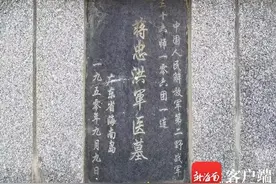 中国人民解放军第二野战军
三十六师一零六团一道
蒋忠洪军医墓
广东省海南岛
一九五零年九月九日
新海南
客户端